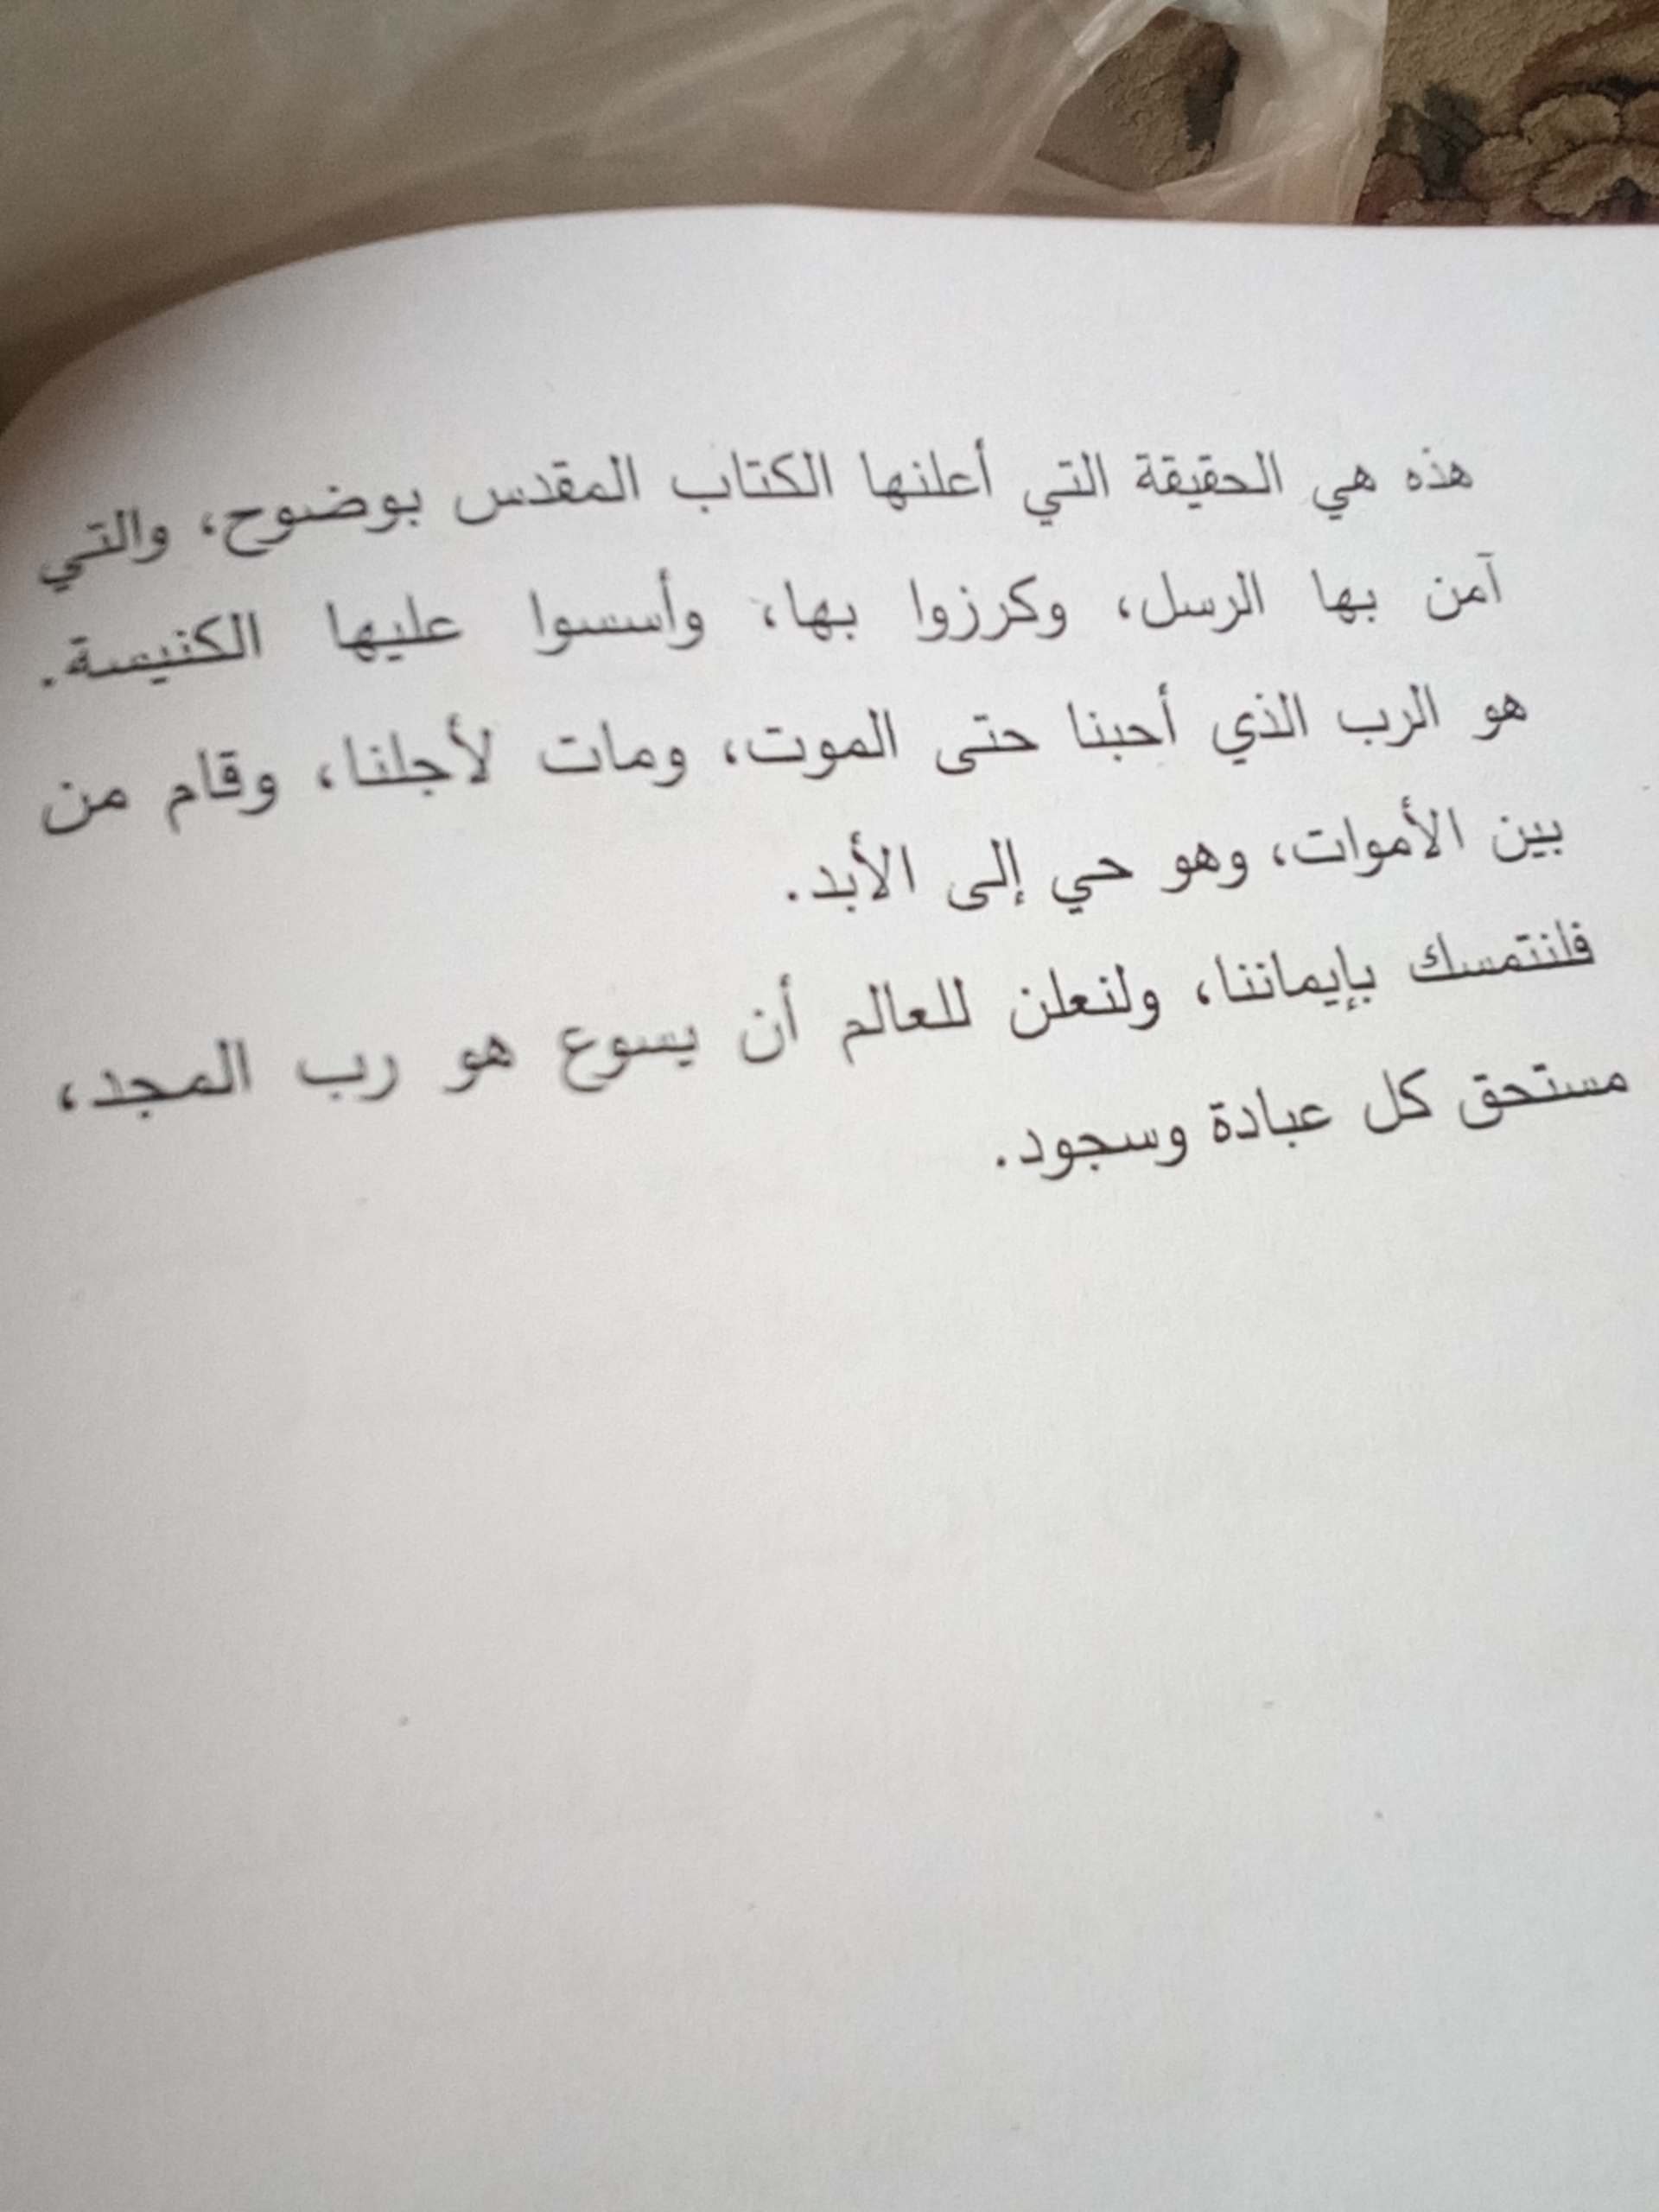 هذه هي الحقيقة التي أعلنها الكتاب المقدس بوضوح، والتي
آمن بها الرسل، وكرزوا بها، وأسسوا عليها الكنيسة.
هو الرب الذي أحبنا حتى الموت، ومات لأجلنا، وقام من
بين الأموات، وهو حي إلى الأبد.
فلنتمسك بإيماننا، ولنعلن للعالم أن يسوع هو رب المجد،
مستحق كل عبادة وسجود.